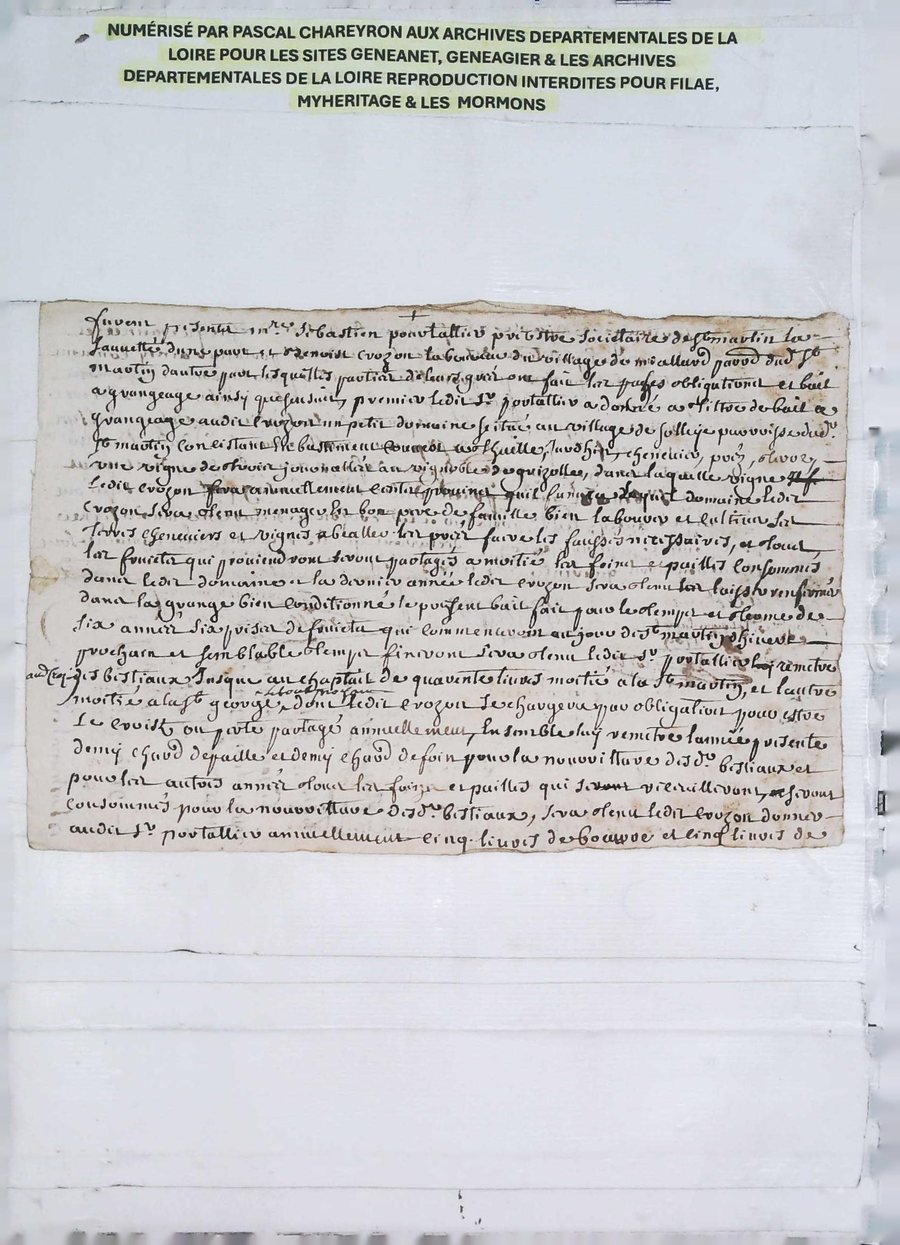 NUMÉRISÉ PAR PASCAL CHAREYRON AUX ARCHIVES DEPARTEMENTALES DE LA
LOIRE POUR LES SITES GENEANET, GENEAGIER & LES ARCHIVES
DEPARTEMENTALES DE LA LOIRE REPRODUCTION INTERDITES POUR FILAE,
MYHERITAGE & LES MORMONS
furent presents mre Sebastien pourtallier prebstre societaire de st martin la
sauvetté d'une part, et benoist crozon laboureur du village de parod dud. st
martin d'autre part lesquelles parties de leurs gréz ont fait les passes obligations et bail
a grangeage ainsy que sensuit, premier ledit sr portallier a donné a tiltre de bail a
grangeage audit crozon un petit domaine scitué au village de parroisse dud.
st martin consistant en bastiment jardin, chenevier, préz,
une vigne de journallier au vignoble de dans laquelle vigne
ledit crozon sera annuellement domaine ledit
crozon sera tenu menager en bon pere de famille bien labourer et cultiver les
terres cheneviers et vignes les préz faire les fausses necessaires, et tous
les fruicts qui proviendront seront partagés a moitié, les foins et pailles consommés
dans ledit domaine et la derniere année ledit crozon sera tenu les laisser renfermés
dans la grange bien conditionné le present bail fait pour le temps et terme de
six années six prises de fruicts qui commenceront au jour de st martin d'hiver
prochain et semblable temps finiront sera tenu ledit sr portallier remetre
aud. des bestiaux jusque au chaptait de quarente livres moitié a la st martin, et l'autre
moitié a la st george dont ledit crozon se chargera par obligation pour estre
le croist ou perte partagé annuellement, ensemble luy remetre l'année presente
demy chard de paille et demy chard de foin pour la nourritture desd. bestiaux et
pour les autres années tous les foins et pailles qui se recueilleront, seront
consommés pour la nourritture desd. bestiaux, sera tenu ledit crozon donner
audit sr portallier annuellement cinq livres de beurre et cinq livres de